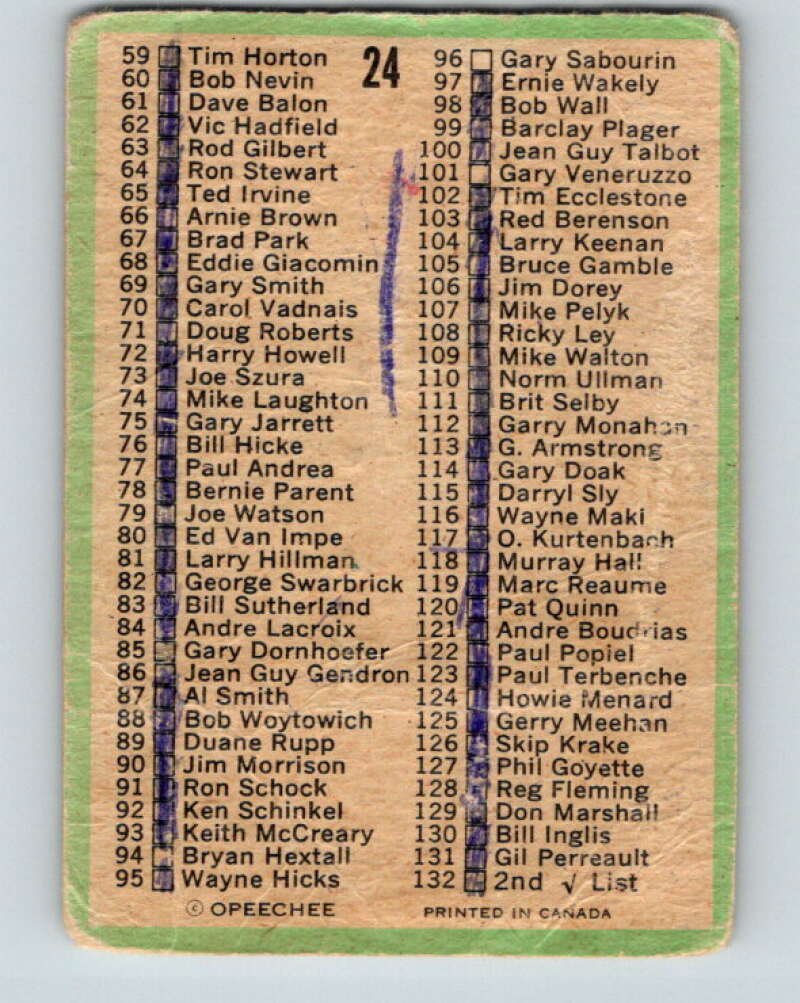 24
59 Tim Horton
60 Bob Nevin
61 Dave Balon
62 Vic Hadfield
63 Rod Gilbert
64 Ron Stewart
65 Ted Irvine
66 Arnie Brown
67 Brad Park
68 Eddie Giacomin
69 Gary Smith
70 Carol Vadnais
71 Doug Roberts
72 Harry Howell
73 Joe Szura
74 Mike Laughton
75 Gary Jarrett
76 Bill Hicke
77 Paul Andrea
78 Bernie Parent
79 Joe Watson
80 Ed Van Impe
81 Larry Hillman
82 George Swarbrick
83 Bill Sutherland
84 Andre Lacroix
85 Gary Dornhoefer
86 Jean Guy Gendron
87 Al Smith
88 Bob Woytowich
89 Duane Rupp
90 Jim Morrison
91 Ron Schock
92 Ken Schinkel
93 Keith McCreary
94 Bryan Hextall
95 Wayne Hicks
96 Gary Sabourin
97 Ernie Wakely
98 Bob Wall
99 Barclay Plager
100 Jean Guy Talbot
101 Gary Veneruzzo
102 Tim Ecclestone
103 Red Berenson
104 Larry Keenan
105 Bruce Gamble
106 Jim Dorey
107 Mike Pelyk
108 Ricky Ley
109 Mike Walton
110 Norm Ullman
111 Brit Selby
112 Garry Monahan
113 G. Armstrong
114 Gary Doak
115 Darryl Sly
116 Wayne Maki
117 O. Kurtenbach
118 Murray Hall
119 Marc Reaume
120 Pat Quinn
121 Andre Boudrias
122 Paul Popiel
123 Paul Terbenche
124 Howie Menard
125 Gerry Meehan
126 Skip Krake
127 Phil Goyette
128 Reg Fleming
129 Don Marshall
130 Bill Inglis
131 Gil Perreault
132 2nd √ List
© OPEECHEE
PRINTED IN CANADA